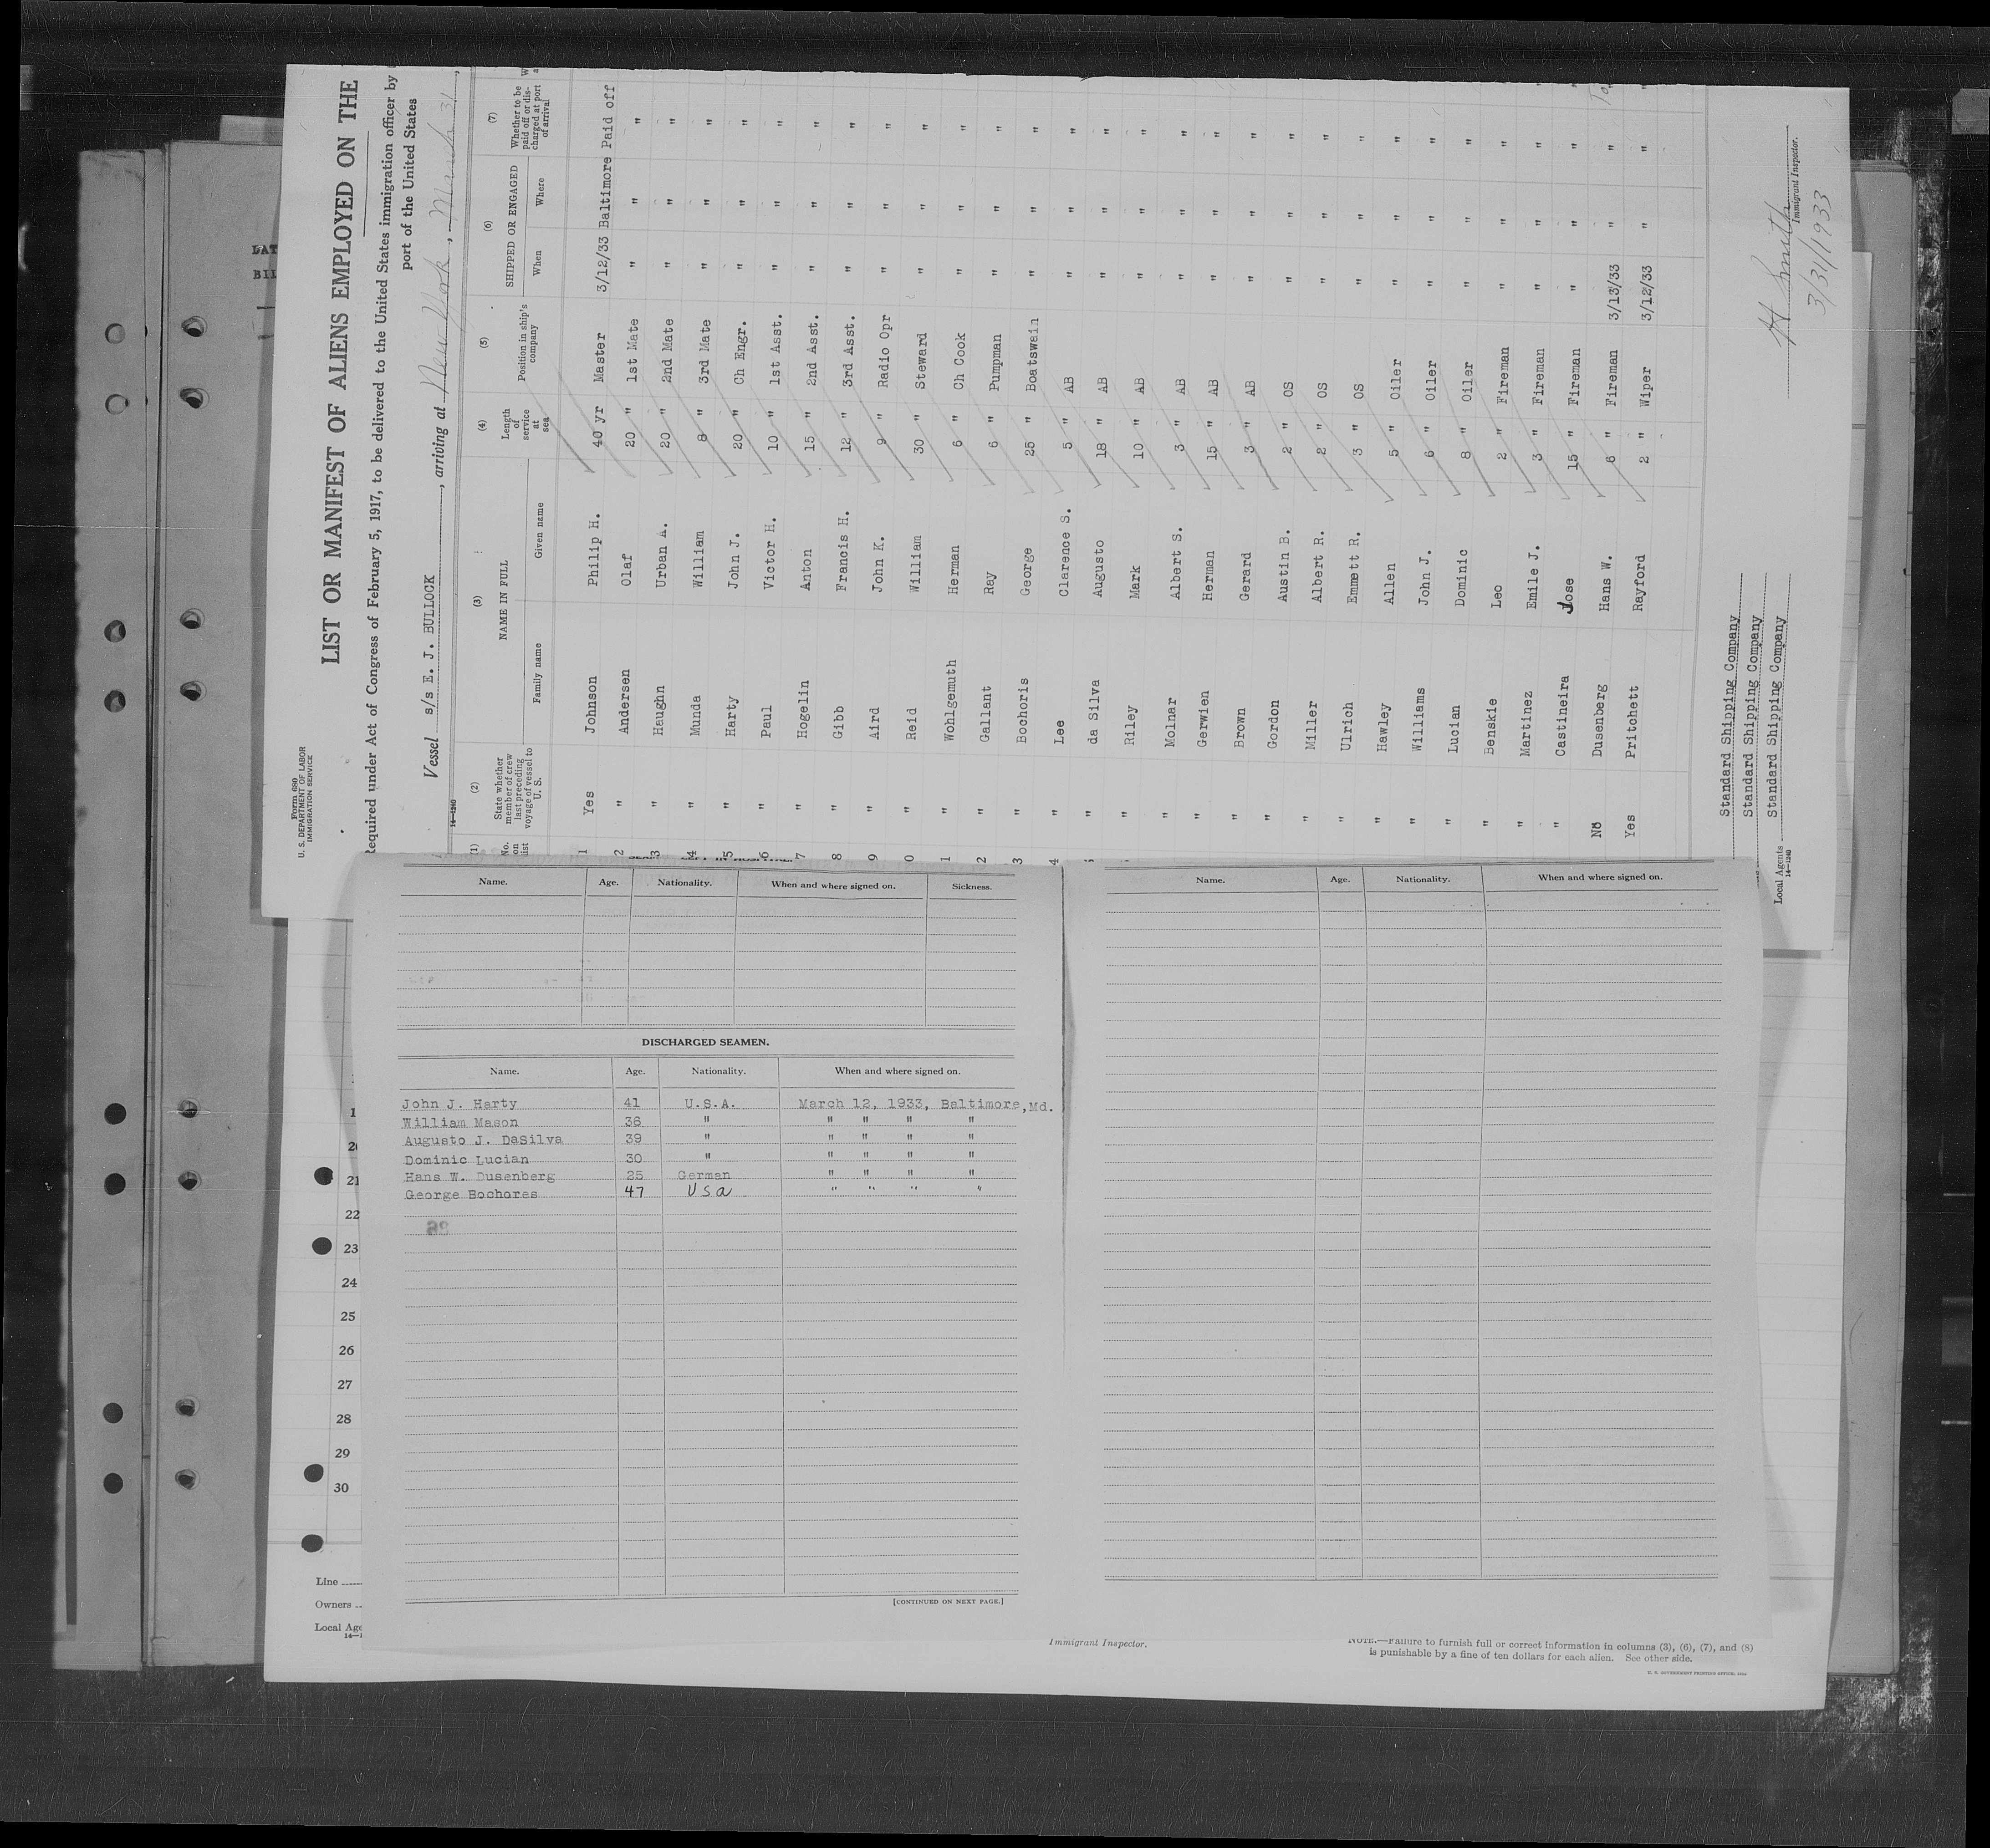 LAT
BIL
Form 680
U. S. DEPARTMENT OF LABOR
IMMIGRATION SERVICE
LIST OR MANIFEST OF ALIENS EMPLOYED ON THE
Required under Act of Congress of February 5, 1917, to be delivered to the United States immigration officer by
port of the United States
Vessel s/s E. J. BULLOCK, arriving at New York, March 31,
14—1240
(1) (2) (3) (4) (5) (6) (7)
No. on list State whether member of crew last preceding voyage of vessel to U. S. NAME IN FULL Family name Given name Length of service at sea Position in ship's company SHIPPED OR ENGAGED When Where Whether to be paid off or discharged at port of arrival
1 Yes Johnson Philip H. 40 yr Master 3/12/33 Baltimore Paid off
2 " Andersen Olaf 20 " 1st Mate " " "
3 " Haughn Urban A. 20 " 2nd Mate " " "
4 " Munda William 8 " 3rd Mate " " "
5 " Harty John J. 20 " Ch Engr. " " "
6 " Paul Victor H. 10 " 1st Asst. " " "
7 " Hogelin Anton 15 " 2nd Asst. " " "
8 " Gibb Francis H. 12 " 3rd Asst. " " "
9 " Aird John K. 9 " Radio Opr " " "
0 " Reid William 30 " Steward " " "
1 " Wohlgemuth Herman 6 " Ch Cook " " "
2 " Gallant Ray 6 " Pumpman " " "
3 " Bochoris George 25 " Boatswain " " "
4 " Lee Clarence S. 5 " AB " " "
" da Silva Augusto 18 " AB " " "
" Riley Mark 10 " AB " " "
" Molnar Albert S. 3 " AB " " "
" Gerwien Herman 15 " AB " " "
" Brown Gerard 3 " AB " " "
" Gordon Austin B. 2 " OS " " "
" Miller Albert R. 2 " OS " " "
" Ulrich Emmett R. 3 " OS " " "
" Hawley Allen 5 " Oiler " " "
" Williams John J. 6 " Oiler " " "
" Lucian Dominic 8 " Oiler " " "
" Benskie Leo 2 " Fireman " " "
" Martinez Emile J. 3 " Fireman " " "
" Castineira Jose 15 " Fireman " " "
No Dusenberg Hans W. 6 " Fireman 3/13/33 " "
Yes Pritchett Rayford 2 " Wiper 3/12/33 " "
Standard Shipping Company
Standard Shipping Company
Local Agents Standard Shipping Company
14—1240
H Smith
Immigrant Inspector.
3/31/1933
Name. Age. Nationality. When and where signed on. Sickness.
DISCHARGED SEAMEN.
Name. Age. Nationality. When and where signed on.
John J. Harty 41 U.S.A. March 12, 1933, Baltimore,Md.
William Mason 36 " " " " "
Augusto J. DaSilva 39 " " " " "
Dominic Lucian 30 " " " " "
Hans W. Dusenberg 25 German " " " "
George Bochores 47 USa " " " "
[CONTINUED ON NEXT PAGE.]
Name. Age. Nationality. When and where signed on.
1
20
21
22
23
24
25
26
27
28
29
30
Line
Owners
Local Age
Immigrant Inspector.
NOTE.—Failure to furnish full or correct information in columns (3), (6), (7), and (8)
is punishable by a fine of ten dollars for each alien. See other side.
U. S. GOVERNMENT PRINTING OFFICE